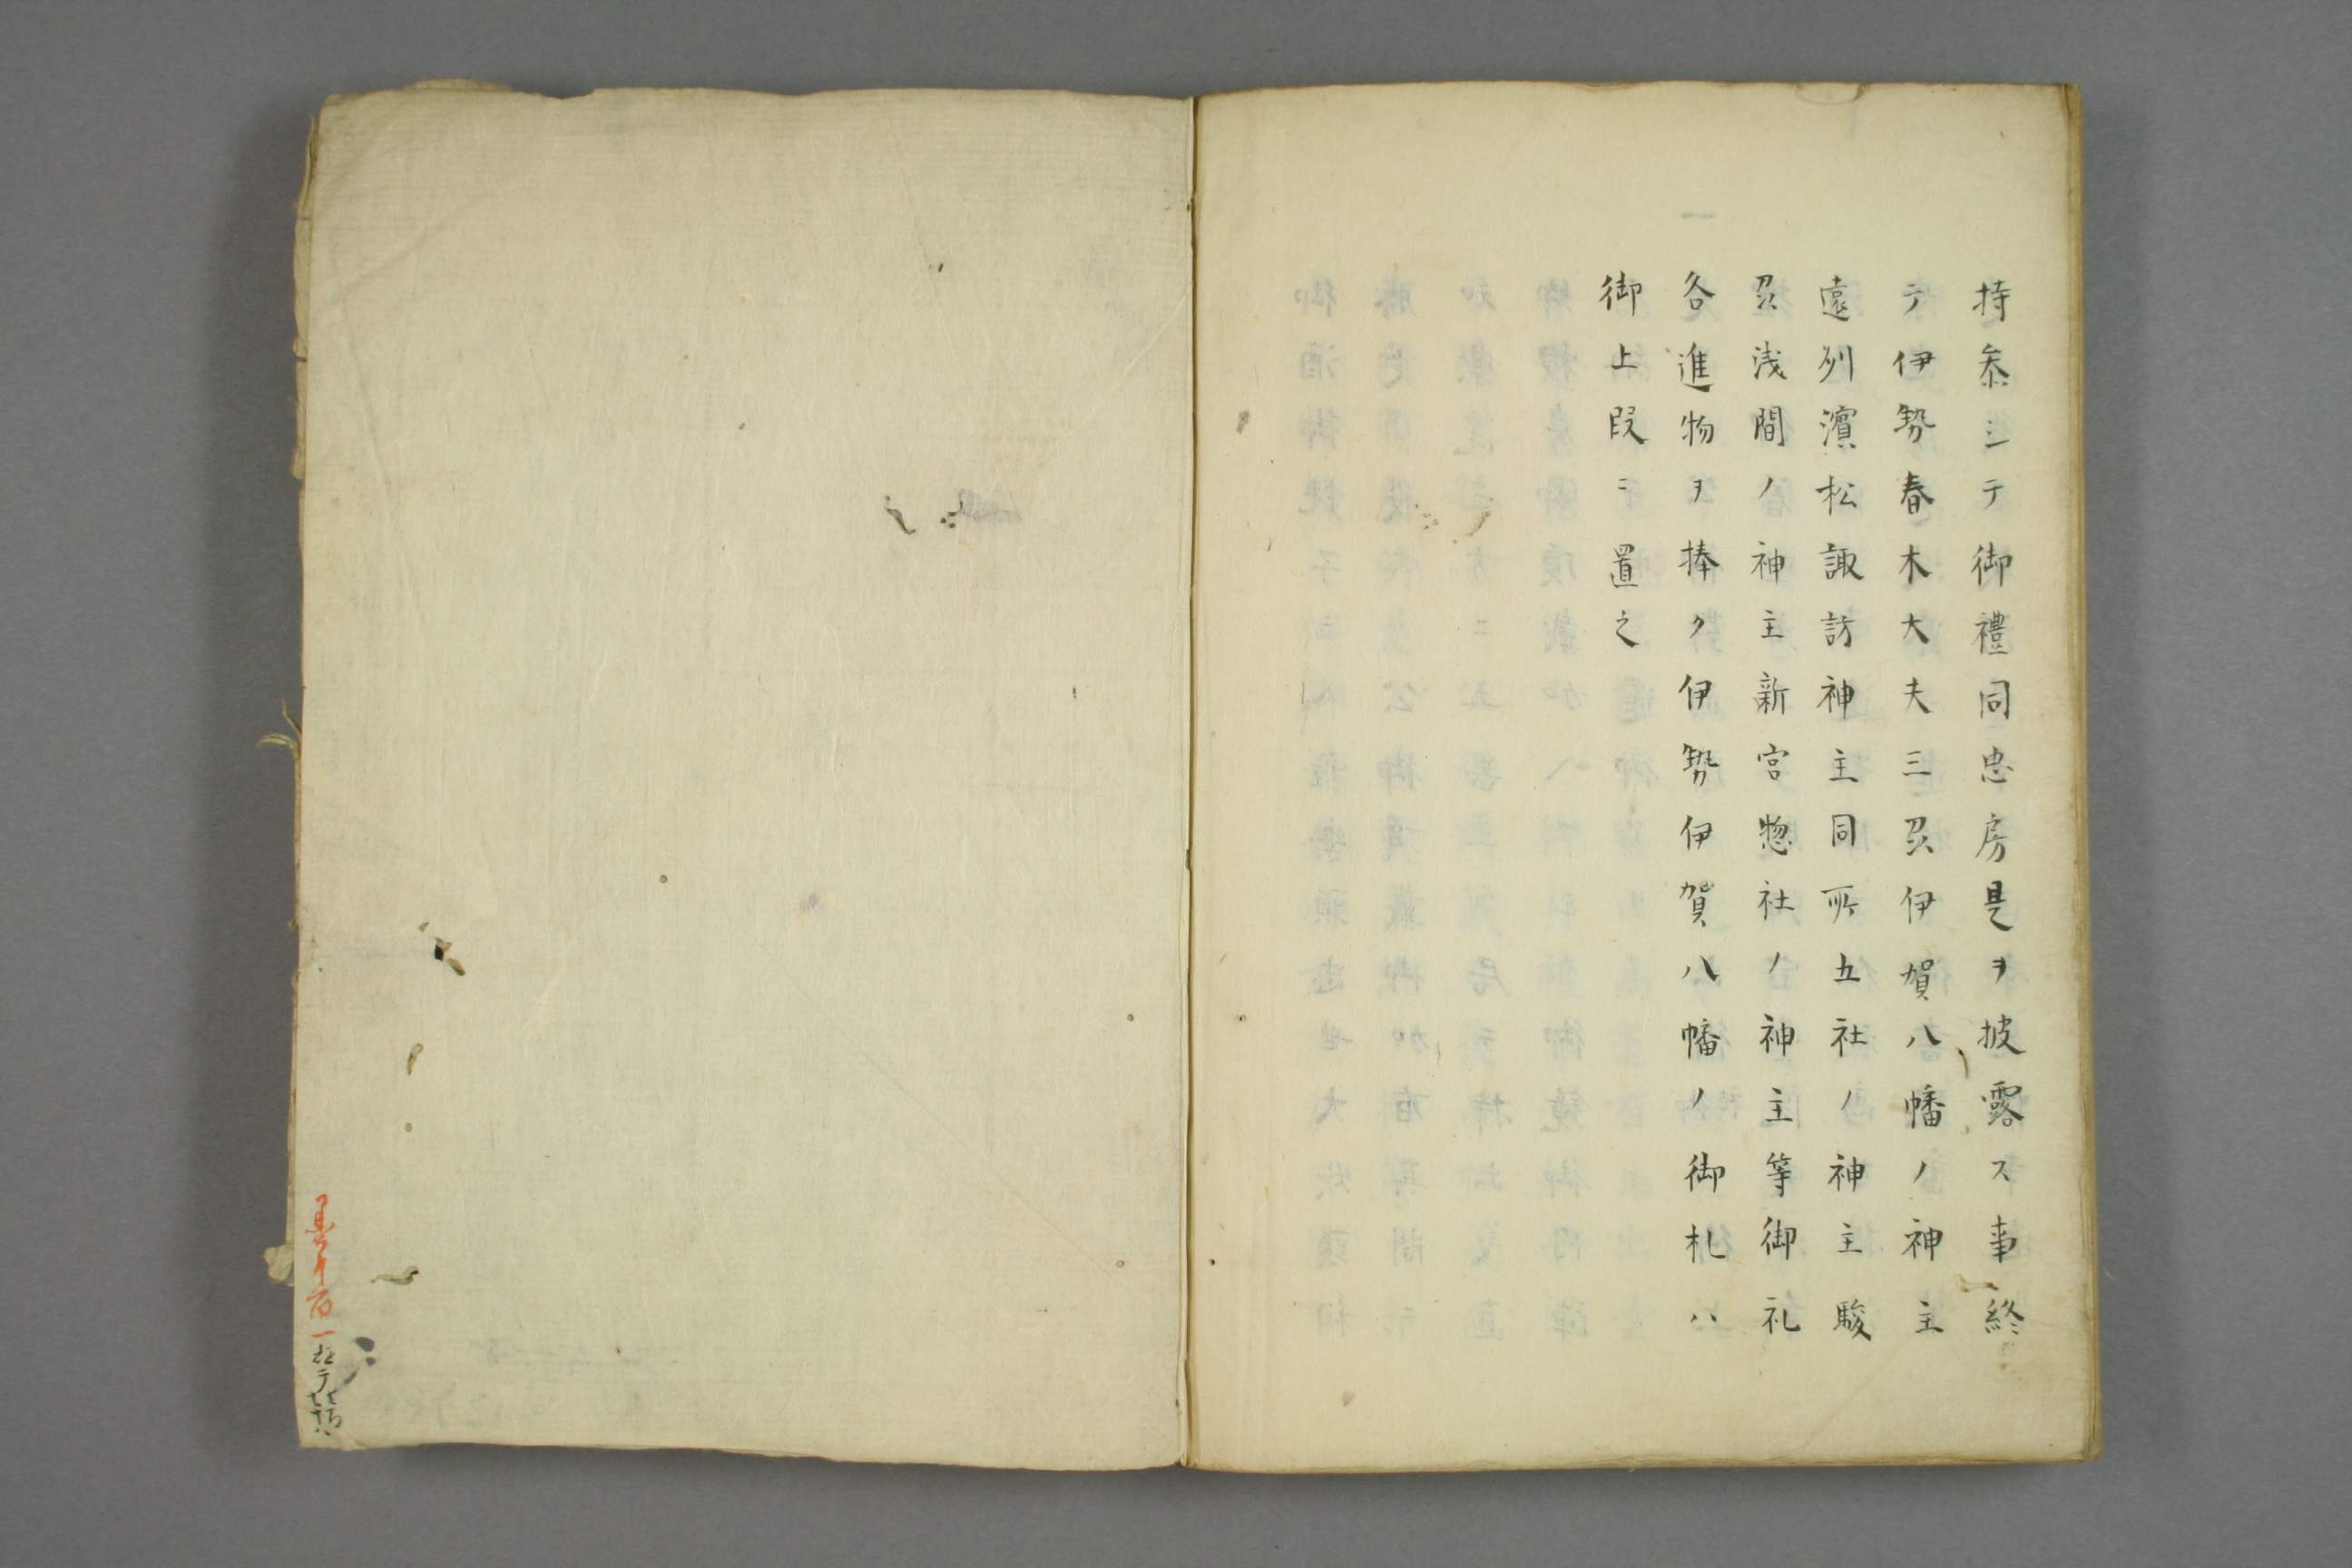 持参シテ御禮同忠房是ヲ披露ス事終
テ伊勢春木大夫三州伊賀八幡ノ神主
遠州濱松諏訪神主同所五社ノ神主駿
州浅間ノ神主新宮惣社ノ神主等御礼
各進物ヲ捧ク伊勢伊賀八幡ノ御札ハ
御上段ニ置之